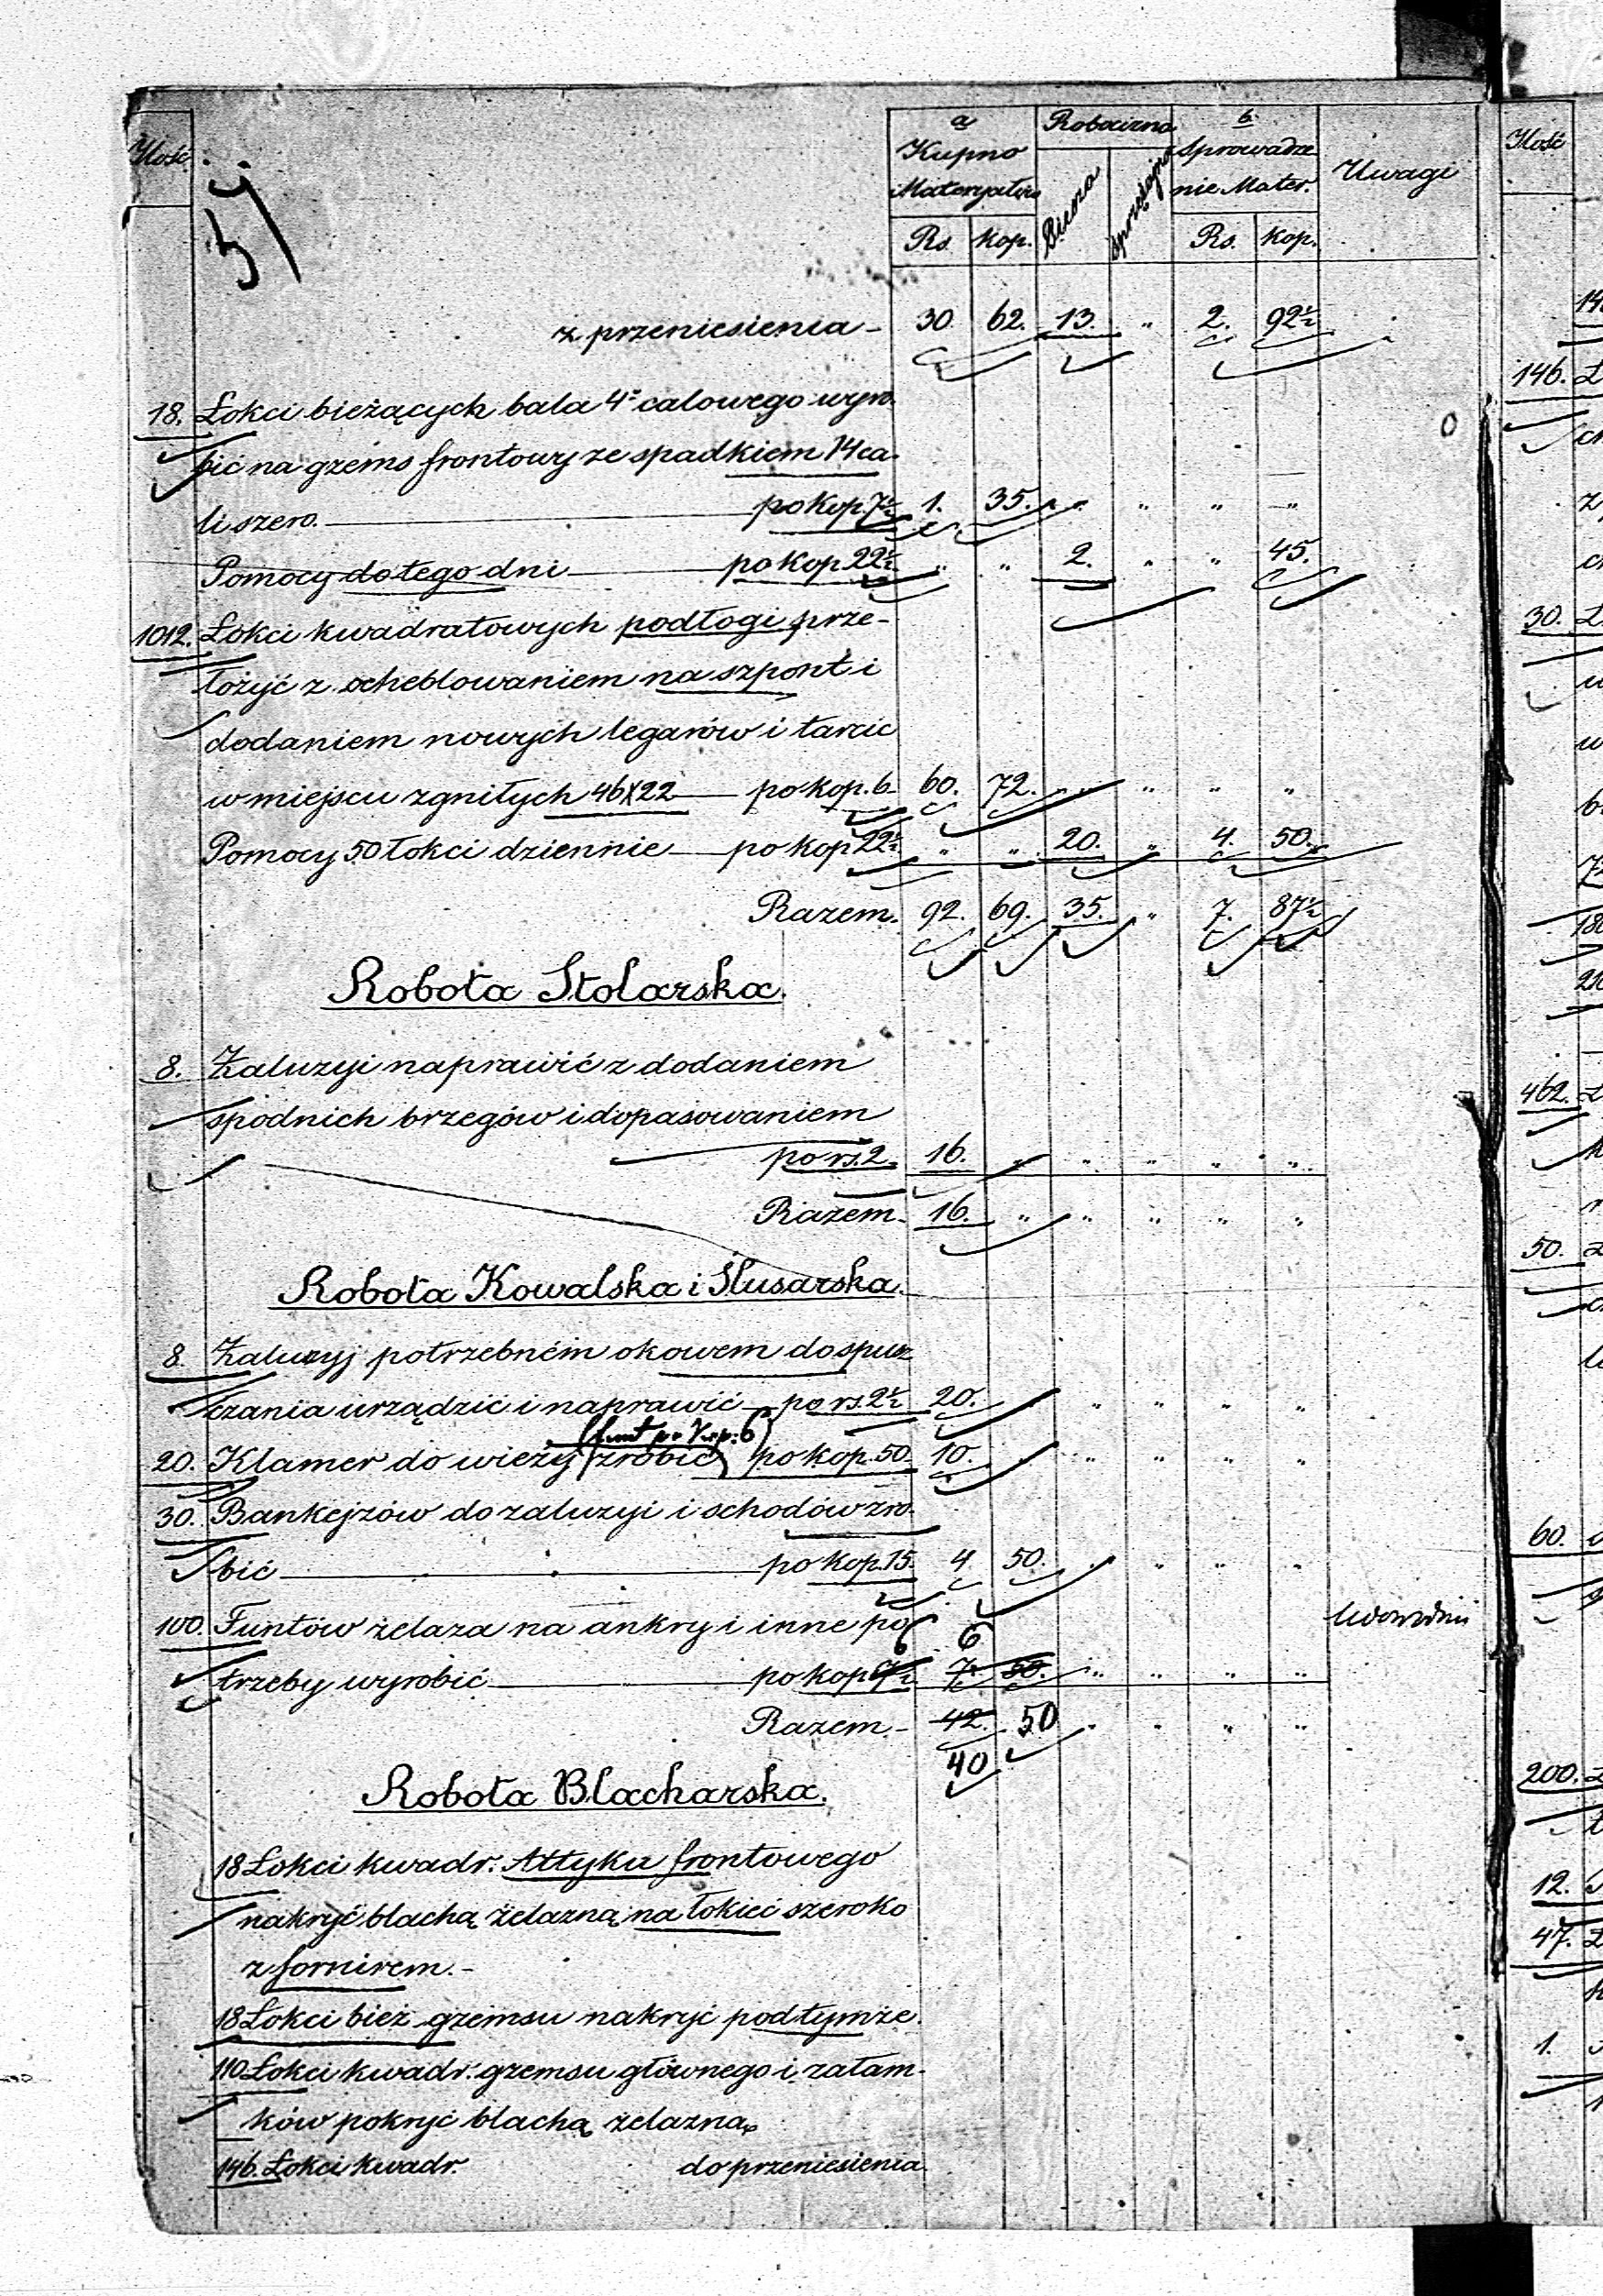 Ilość
a
Kupno
Materyałów
Robocizna
Piesza
sprzężajna
b
Sprowadze
nie Mater.
Uwagi
Rs. kop.
Rs. kop.
z przeniesienia - 30. 62. 13. " 2. 92½
18. Łokci bieżących bala 4" calowego wyro-
bić na gzems frontowy ze spadkiem 14 ca-
li szero. po kop. 7½ 1. 35. " " " "
Pomocy do tego dni po kop 22½ " " 2. " " 45.
1012. Łokci kwadratowych podłogi prze-
łożyć z ocheblowaniem na szpont i
dodaniem nowych legarów i tarcic
w miejscu zgniłych 46X22 po kop. 6 60. 72. " " " "
Pomocy 50 łokci dziennie po kop 22½ " " 20. " 4. 50.
Razem. 92. 69. 35. " 7. 87½
Robota Stolarska.
8. Żaluzyi naprawić z dodaniem
spodnich brzegów i dopasowaniem
po rs. 2. 16. " " " " "
Razem. 16. " " " " "
Robota Kowalska i Ślusarska.
8. Żaluzyj potrzebném okowem do spusz
czania urządzić i naprawić po rs. 2½ 20. " " " " "
(funt po Kop: 6)
20. Klamer do wieży zrobić po kop. 50. 10. " " " " "
30. Bankejzów do żaluzyi i schodów zro-
bić po kop. 15. 4. 50. " " " "
100. Funtów żelaza na ankry i inne po
6 6
trzeby wyrobić po kop. 7½ 7. 50. " " " "
Razem. - 42. 50 " " " "
40
Robota Blacharska.
18 Łokci kwadr. Attyku frontowego
nakryć blachą żelazną na łokieć szeroko
z fornirem. -
18 Łokci bież. gzemsu nakryć pod tymże
110 Łokci kwadr. gzemsu głównego i załam-
ków pokryć blachą żelazną
146. Łokci kwadr. do przeniesienia
Ilość
146.
30.
462.
50.
60.
200.
12.
47.
1.